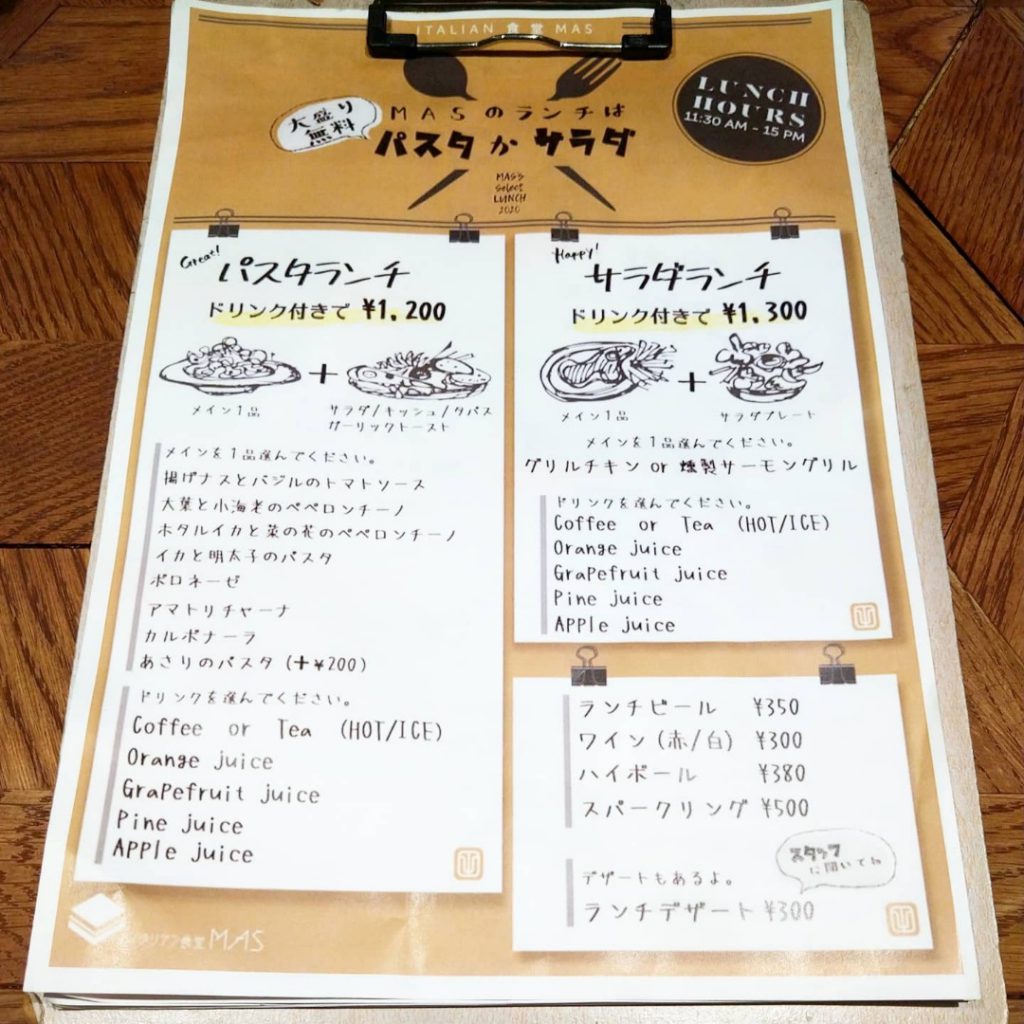 ITALIAN 食堂 MAS
大盛り
無料
MASのランチは
パスタ か サラダ
MAS's
Select
LUNCH
2020
LUNCH
HOURS
11:30 AM - 15 PM
Great!
パスタランチ
ドリンク付きで ¥1,200
+
メイン1品
サラダ/キッシュ/タパス
ガーリックトースト
メインを1品選んでください。
揚げナスとバジルのトマトソース
大葉と小海老のペペロンチーノ
ホタルイカと菜の花のペペロンチーノ
イカと明太子のパスタ
ボロネーゼ
アマトリチャーナ
カルボナーラ
あさりのパスタ (+¥200)
ドリンクを選んでください。
Coffee or Tea (HOT/ICE)
Orange juice
GraPefruit juice
Pine juice
APPle juice
イタリアン食堂 MAS
Happy!
サラダランチ
ドリンク付きで ¥1,300
+
メイン1品
サラダプレート
メインを1品選んでください。
グリルチキン or 燻製サーモングリル
ドリンクを選んでください。
Coffee or Tea (HOT/ICE)
Orange juice
GraPefruit juice
Pine juice
APPle juice
ランチビール ¥350
ワイン (赤/白) ¥300
ハイボール ¥380
スパークリング ¥500
スタッフ
に聞いてね
デザートもあるよ。
ランチデザート ¥300